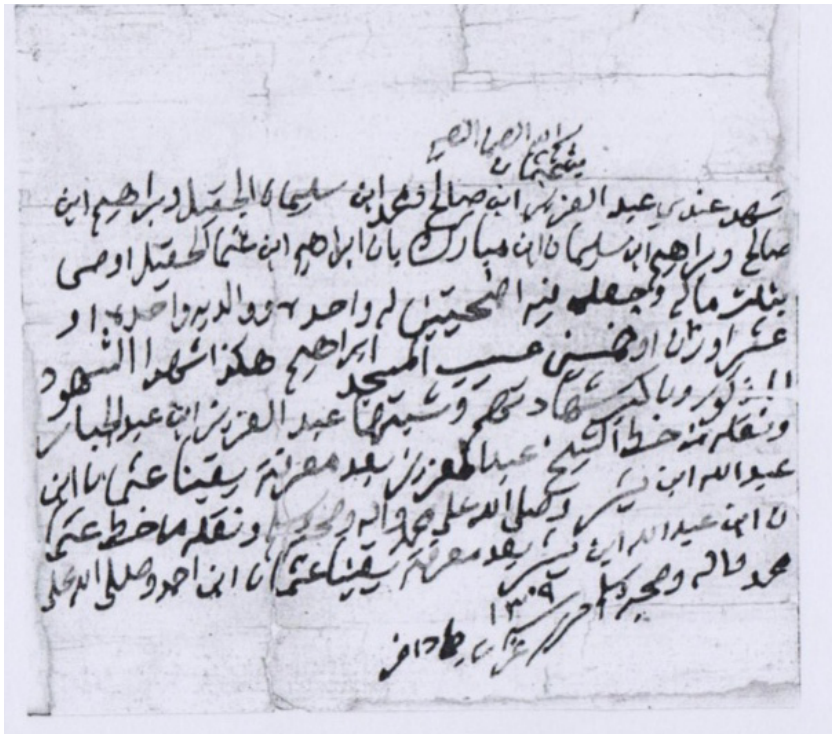 شهد عندي عبد العزيز ابن صالح ابن سليمان الحقيل وبراهيم ابن
صالح وبراهيم ابن سليمان ابن مبارك بان ابراهيم ابن عثمان الحقيل اوصى
بثلث ماله وجعل فيه اضحيتين له واحده ووالديه واحده او
عشر اوزان عسيب المسجد ابراهيم هكذا شهدا الشهود
المذكورون شهادتهم وثبتها عبد العزيز ابن عبد الجبار
ونقله من خط الشيخ عبد العزيز بعد معرفته يقينا عثمان ابن
عبد الله ابن بشر وصلى الله على محمد واله وصحبه وسلم ونقله من خط عثما
ن ابن عبد الله ابن بشر بعد معرفته يقينا عثمان ابن احمد وصلى الله على
محمد واله وصحبه وسلم
١٣٠٩